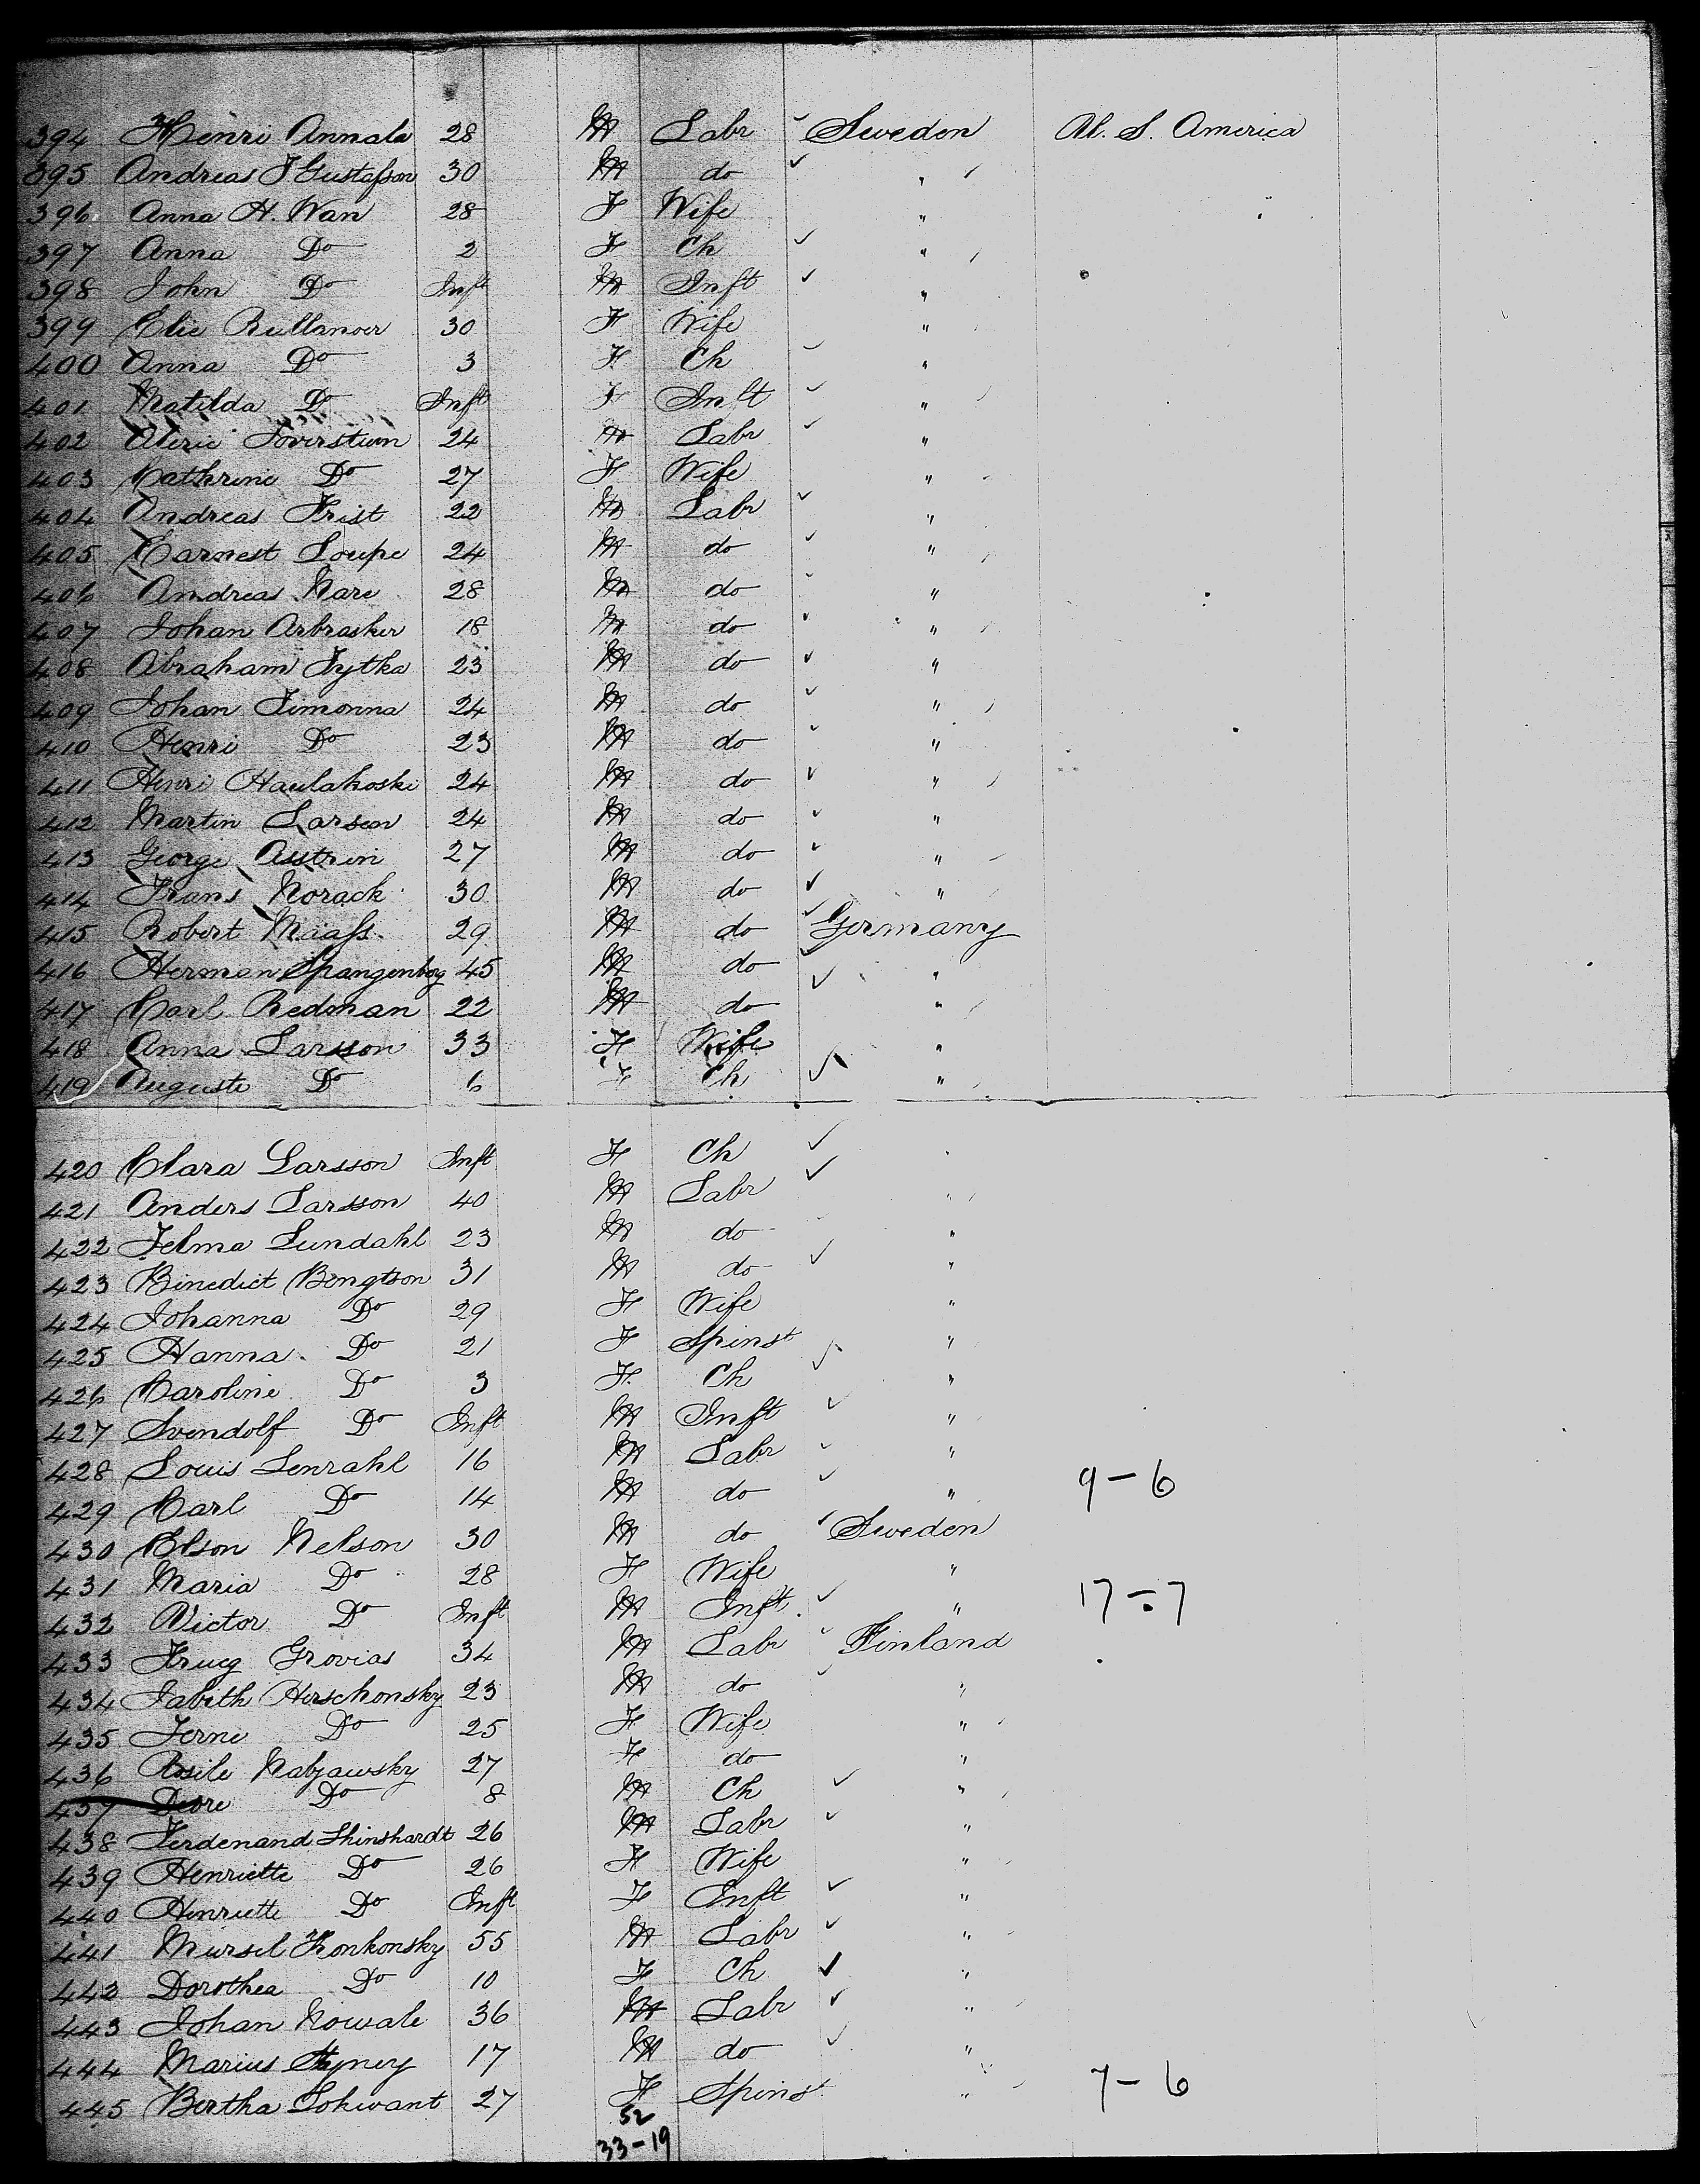 394 Henri Annala 28 M Labr Sweden U. S. America
395 Andreas J Gustafson 30 M do "
396 Anna H. Wan 28 F Wife "
397 Anna Do 2 F Ch "
398 John Do Inft M Inft "
399 Elie Rullanoer 30 F Wife "
400 Anna Do 3 F Ch "
401 Matilda Do Inft F Inft "
402 Aleric Soverstum 24 M Labr "
403 Cathrine Do 27 F Wife "
404 Andreas Frist 22 M Labr "
405 Earnest Loupe 24 M do "
406 Andreas Nare 28 M do "
407 Johan Arbrasker 18 M do "
408 Abraham Jytka 23 M do "
409 Johan Simonna 24 M do "
410 Henri Do 23 M do "
411 Henri Haulakoski 24 M do "
412 Martin Larsen 24 M do "
413 George Asstrin 27 M do "
414 Frans Norack 30 M do "
415 Robert Miass 29 M do Germany
416 Herman Spangenbog 45 M do "
417 Carl Redman 22 M do "
418 Anna Larsson 33 F Wife "
419 Auguste Do 6 F Ch "
420 Clara Larsson Inft F Ch "
421 Anders Larsson 40 M Labr "
422 Telma Lundahl 23 M do "
423 Binedict Bengtson 31 M do "
424 Johanna Do 29 F Wife "
425 Hanna Do 21 F Spinst "
426 Caroline Do 3 F Ch "
427 Svendolf Do Inft M Inft "
428 Louis Lenrahl 16 M Labr "
429 Carl Do 14 M do " 9-6
430 Elson Nelson 30 M do Sweden
431 Maria Do 28 F Wife "
432 Victor Do Inft M Inft " 17-7
433 Trug Grovias 34 M Labr Finland
434 Jabith Herschonsky 23 M do "
435 Ferne Do 25 F Wife "
436 Rosile Nabjawsky 27 F do "
437 Dore Do 8 M Ch "
438 Ferdenand Shinshardt 26 M Labr "
439 Henriette Do 26 F Wife "
440 Henriette Do Inft F Inft "
441 Mursel Konkonsky 55 M Labr "
442 Dorothea Do 10 F Ch "
443 Johan Nowale 36 M Labr "
444 Marius Styney 17 M do "
445 Bertha Lohwant 27 F Spinst " 7-6
52
33-19